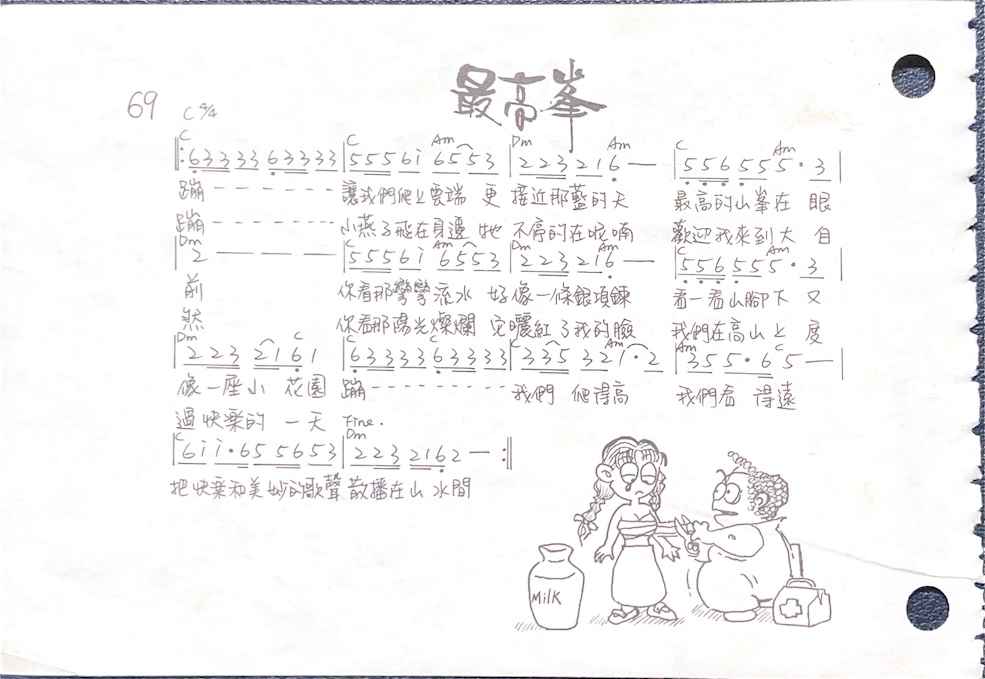 最高峯
69 C 4/4
C C Am Dm Am C Am
‖: 6 3 3 3 3 3 6 3 3 3 3 3 | 5 5 5 6 i 6 5 5 3 | 2 2 3 2 1 6 — | 5 5 6 5 5 5 · 3 |
蹦 - - - - - - 讓我們爬上雲端 更 接近那藍的天 最高的山峯在 眼
蹦 - - - - - - 小燕子飛在身邊 牠 不停的在呢喃 歡迎我來到大 自
Dm C Am Dm Am C Am
| 2 — — — | 5 5 5 6 i 6 5 5 3 | 2 2 3 2 1 6 — | 5 5 6 5 5 5 · 3 |
前 你看那彎彎流水 好像一條銀項鍊 看一看山腳下 又
然 你看那陽光燦爛 它曬紅了我的臉 我們在高山上 度
Dm C C C C Am Am C
| 2 2 3 2 1 6 1 | 6 3 3 3 3 3 6 3 3 3 3 3 | 3 3 5 3 2 1 · 2 | 3 5 5 · 6 5 — |
像一座小 花園 蹦 - - - - - - 我們 爬得高 我們看 得遠
過快樂的 一天 Fine.
C Dm
| 6 i i · 6 5 5 6 5 3 | 2 2 3 2 1 6 2 — :‖
把快樂和美妙的歌聲 散播在山 水間
MILK